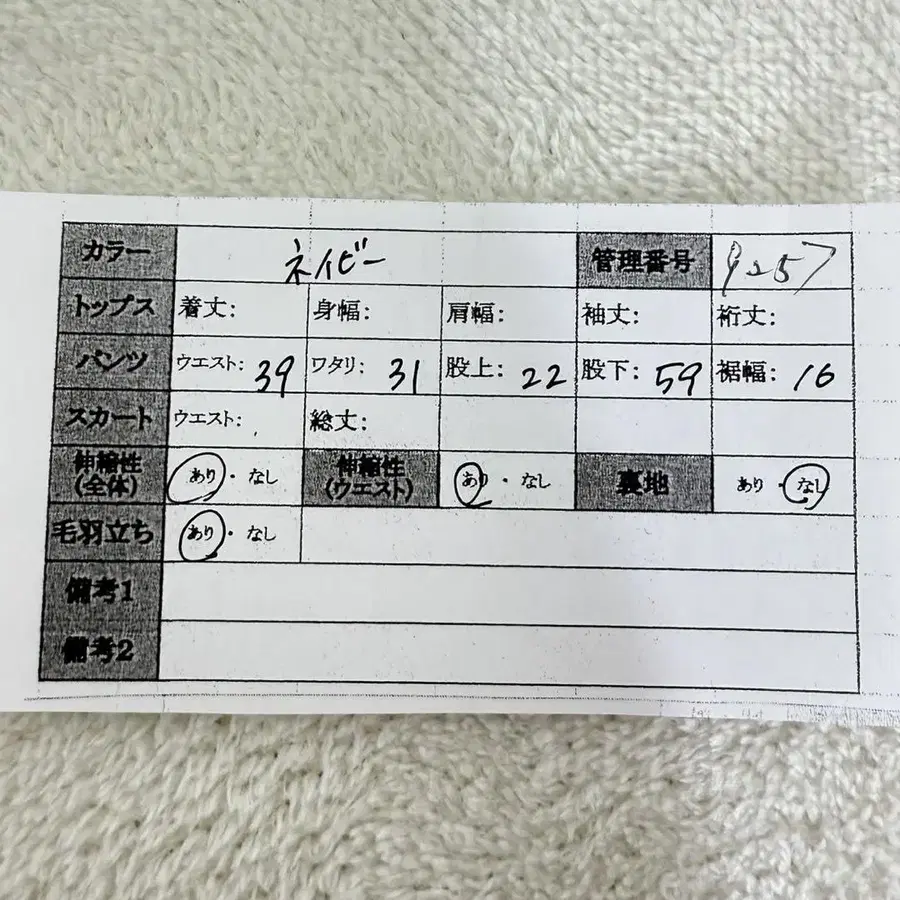 カラー ネイビー 管理番号 9257
トップス 着丈: 身幅: 肩幅: 袖丈: 裄丈:
パンツ ウエスト: 39 ワタリ: 31 股上: 22 股下: 59 裾幅: 16
スカート ウエスト: 総丈:
伸縮性 あり・なし 伸縮性 あり・なし 裏地 あり・なし
(全体) (ウエスト)
毛羽立ち あり・なし
備考1
備考2